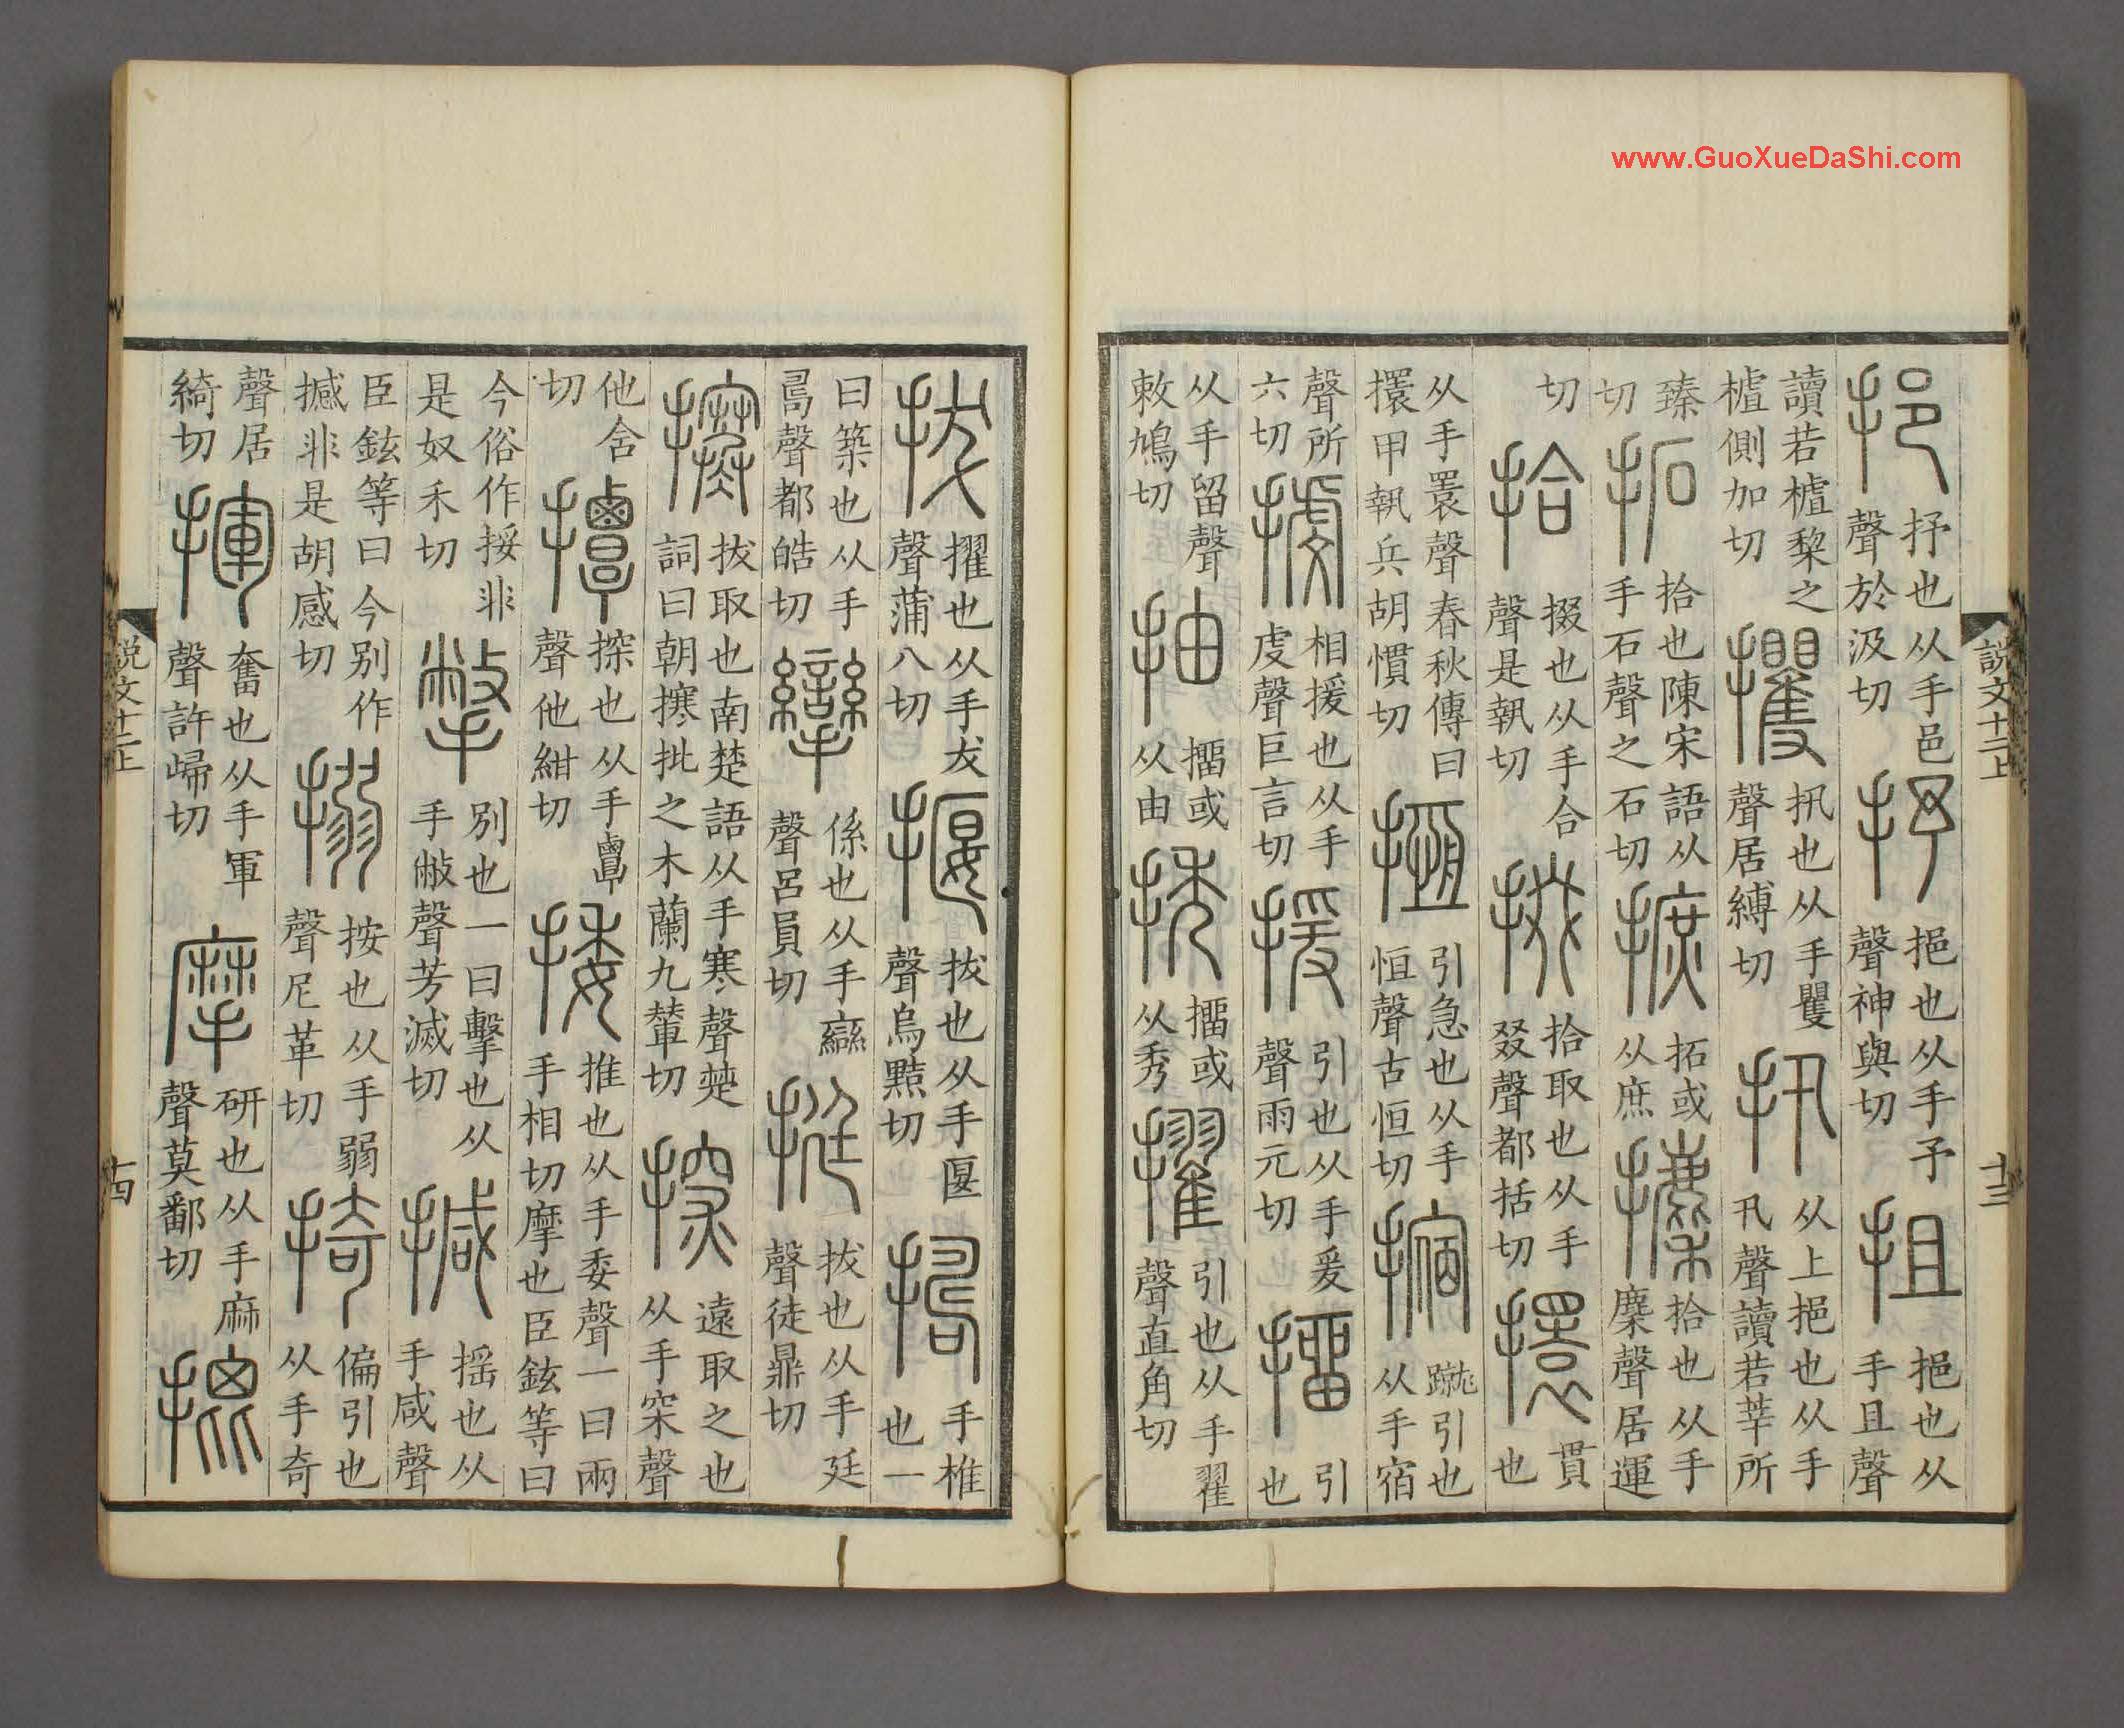 www.GuoXueDaShi.com
説文十二上 十三
挹抒也从手邑聲於汲切抒挹也从手予聲神與切抯挹也从手且聲
讀若樝棃之樝側加切攫扟也从手矍聲居縛切扟从上挹也从手卂聲讀若莘所
臻切拓拾也陳宋語从手石聲之石切摭拓或从庶攈拾也从手麇聲居運
切拾掇也从手合聲是執切掇拾取也从手叕聲都括切擐貫也
从手瞏聲春秋傳曰擐甲執兵胡慣切揯引急也从手恒聲古恒切摍蹴引也从手宿
聲所六切㩮相援也从手虔聲巨言切援引也从手爰聲雨元切㩅引也
从手留聲敕鳩切抽㩅或从由㧕㩅或从秀擢引也从手翟聲直角切
拔擢也从手犮聲蒲八切揠拔也从手匽聲烏黠切擣手椎也一
曰築也从手𠷎聲都皓切攣係也从手䜌聲呂員切挺拔也从手廷聲徒鼎切
㩃拔取也南楚語从手寒聲楚詞曰朝攐批之木蘭九輦切探遠取之也从手罙聲
他含切撢探也从手覃聲他紺切捼推也从手委聲一曰兩手相切摩也臣鉉等曰
今俗作挼非是奴禾切撆別也一曰擊也从手敝聲芳滅切㨔搖也从手咸聲
臣鉉等曰今別作撼非是胡感切搦按也从手弱聲尼革切掎偏引也从手奇
聲居綺切揮奮也从手軍聲許歸切摩研也从手麻聲莫鄱切
説文十二上 十四